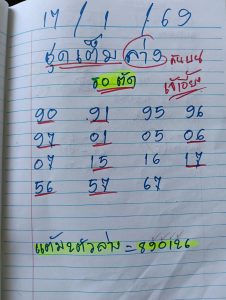 17 / 1 / 69
ชุดเต็ม ล่าง กันบน
80 ตัด เจ้เอ๋ง
90 91 95 96
97 01 05 06
07 15 16 17
56 57 67
แต้ม2ตัวล่าง = 890126